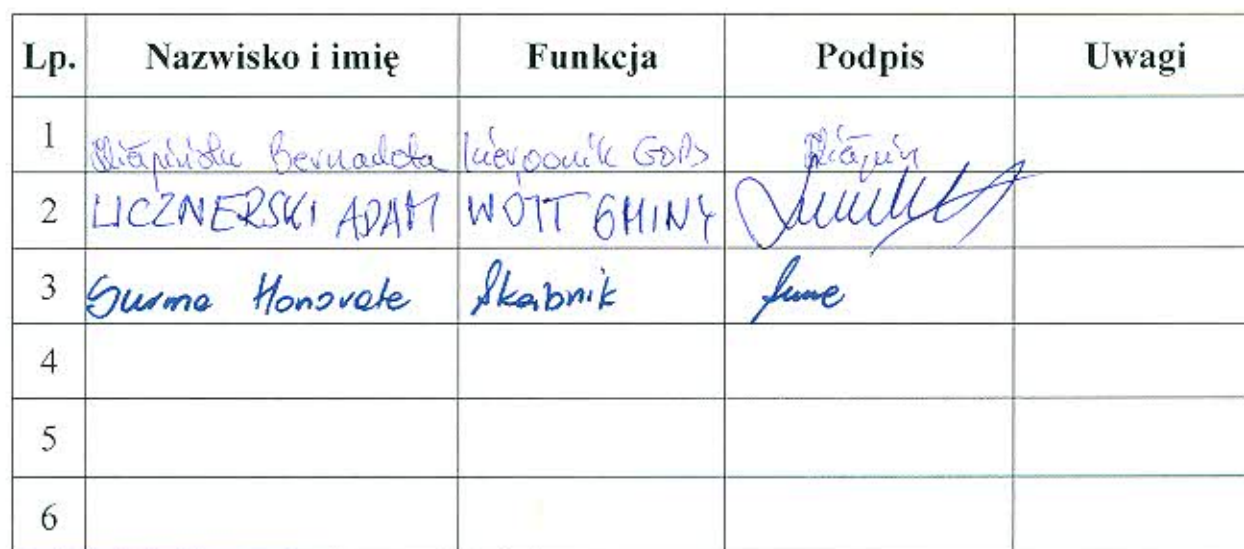 Lp. Nazwisko i imię Funkcja Podpis Uwagi
1 Bernadeta Kierownik GOPS
2 LICZNERSKI ADAM WÓJT GMINY
3 Surma Honorata Skarbnik
4
5
6